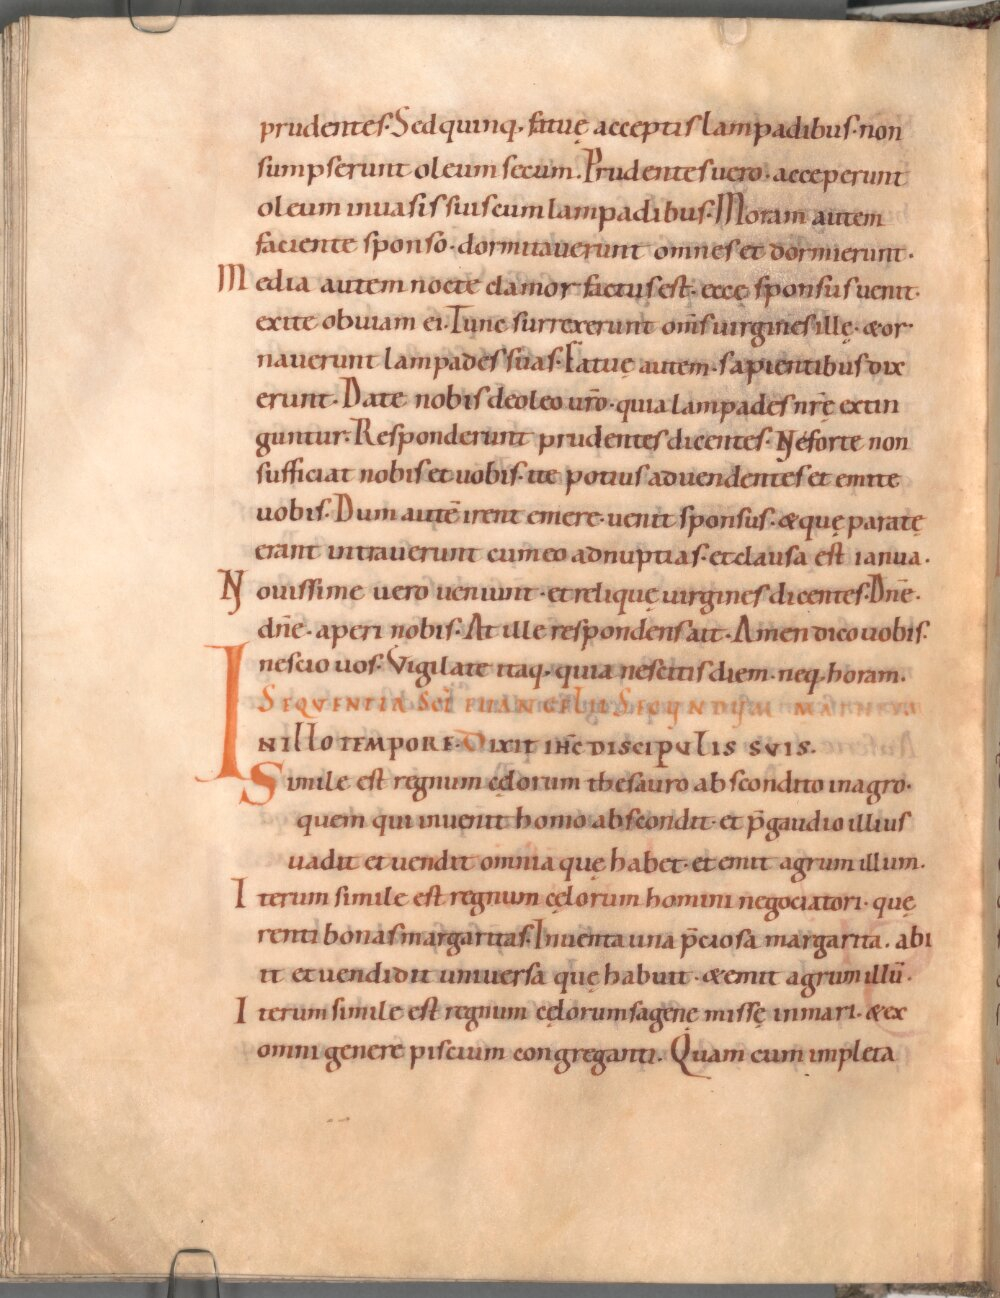 prudentes. Sed quinq. fatuę acceptis lampadibus. non
sumpserunt oleum secum. Prudentes uero. acceperunt
oleum inuasis suis cum lampadibus. Moram autem
faciente sponso. dormitauerunt omnes et dormierunt.
Media autem nocte clamor factus est. ecce sponsus uenit.
exite obuiam ei. Tunc surrexerunt om̅s uirgines illę. &or
nauerunt lampades suas. Fatuę autem. sapientibus dix
erunt. Date nobis deoleo ur̅o. quia lampades nr̅ę extin
guntur. Responderunt prudentes dicentes. Ne forte non
sufficiat nobis et uobis. ite potius aduendentes et emite
uobis. Dum aute̅ irent emere. uenit sponsus. & quę paratę
erant intrauerunt cum eo adnuptias. et clausa est ianua.
Nouissime uero ueniunt. et reliquę uirgines dicentes. Dn̅e.
dn̅e. aperi nobis. At ille respondens ait. Amen dico uobis.
nescio uos. Vigilate itaq. quia nescitis diem. neq. horam.
SEQVENTIA SC̅I EUANGELII SECUNDUM MATHEU
IN ILLO TEMPORE. DIXIT IHC̅ DISCIPULIS SVIS.
Simile est regnum cęlorum thesauro abscondito inagro.
quem qui inuenit homo abscondit. et p̅ gaudio illius
uadit et uendit omnia quę habet. et emit agrum illum.
Iterum simile est regnum cęlorum homini negociatori. quę
renti bonas margaritas. Inuenta una p̅ciosa margarita. abi
it et uendidit uniuersa quę habuit. & emit agrum illu̅.
Iterum simile est regnum cęlorum sagenę missę inmari. & ex
omni genere piscium congreganti. Quam cum impleta